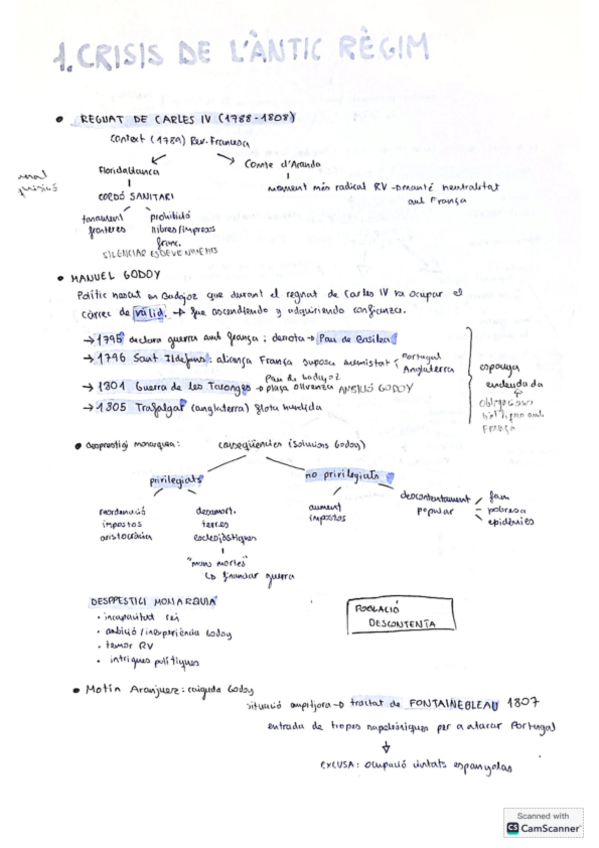 1. CRISIS DE L'ÀNTIC RÈGIM
• REGNAT DE CARLES IV (1788-1808)
Context (1789) Rev. Francesa
Floridablanca
Comte d'Aranda
CORDÓ SANITARI
moment més radical RV → manté neutralitat
amb França
tancament
fronteres
prohibició
llibres/impresos
franc.
SILENCIAR ESDEVENIMENTS
• MANUEL GODOY
Polític nascut en Badajoz que durant el regnat de Carles IV va ocupar el
càrrec de valid. → fue ascendiendo y adquiriendo confianza.
→ 1795 declara guerra amb frança: derrota → Pau de Basilea
→ 1796 Sant Ildefons: aliança França suposa enemistat
Portugal
Anglaterra
→ 1801 Guerra de les Taronges → Pau de Badajoz
plaça Olivenza AMBICIÓ GODOY
→ 1805 Trafalgar (anglaterra) flota hundida
espanya
endeudada
obligacions
amb
FRANÇA
• Desprestigi monarquia: conseqüències (solucions Godoy)
privilegiats
no privilegiats
reordenació
impostos
aristocràcia
desamort.
terres
eclesiàstiques
"mans mortes"
↳ financiar guerra
augment
impostos
descontentament
popular
fam
pobresa
epidèmies
DESPRESTIGI MONARQUIA
• incapacitat rei
• ambició/inexperiència Godoy
• temor RV
• intrigues polítiques
POBLACIÓ
DESCONTENTA
• Motín Aranjuez: caiguda Godoy
situació empitjora → tractat de FONTAINEBLEAU 1807
entrada de tropes napoleòniques per a atacar Portugal
EXCUSA: ocupació ciutats espanyoles
Scanned with
CS CamScanner